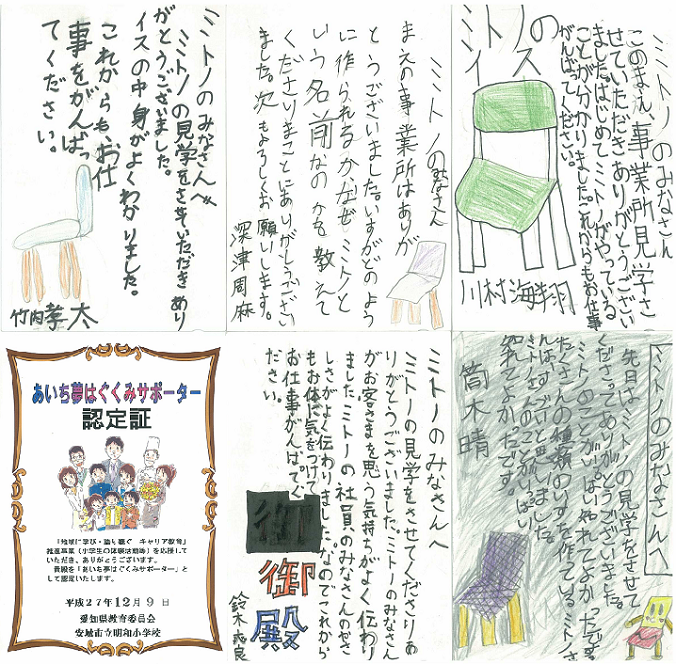 ミトノのみなさんへ
ミトノの見学をさせいただきあり
がとうございました。
イスの中身がよくわかりました。
これからも、お仕
事をがんばっ
てください。
竹内孝太
ミトノのみなさん
まえの事業所はありが
とうございました。いすがどのよう
に作られるか、なぜミトノと
いう名前なのかを教えて
くださりまことにありがとうござい
ました。次もよろしくお願いします。
深津周麻
ミトノのイス
ミトノのみなさん
このまえ、事業所見学さ
せていただきありがとうござい
ました。はじめてミトノがやっている
ことが分かりました。これからもお仕事
がんばってください。
川村海翔
あいち夢はぐくみサポーター
認定証
「地域に学び・語り継ぐ キャリア教育」
推進事業（小学生の体験活動等）を応援して
いただき、ありがとうございます。
貴殿を「あいち夢はぐくみサポーター」と
して認定いたします。
平成27年12月9日
愛知県教育委員会
安城市立明和小学校
ミトノのみなさんへ
ミトノの見学をさせてくださりあ
りがとうございました。ミトノのみなさん
がお客さまを思う気持ちがよく伝わり
ましたミトノの社員のみなさんのやさ
しさがよく伝わりました。なのでこれから
もお体に気をつけて
お仕事がんばってく
ださい。
御
御
殿
ミトノのみなさんへ
先日はミトノの見学をさせて
くださってありがとうございました。
ミトノのことがいっぱいしれてよかったです。
たくさんの種類のいすを作っているミトノさ
んはすごいと思いました。
ミトノさんのことがいっぱい
知れてよかったです。
筒木晴